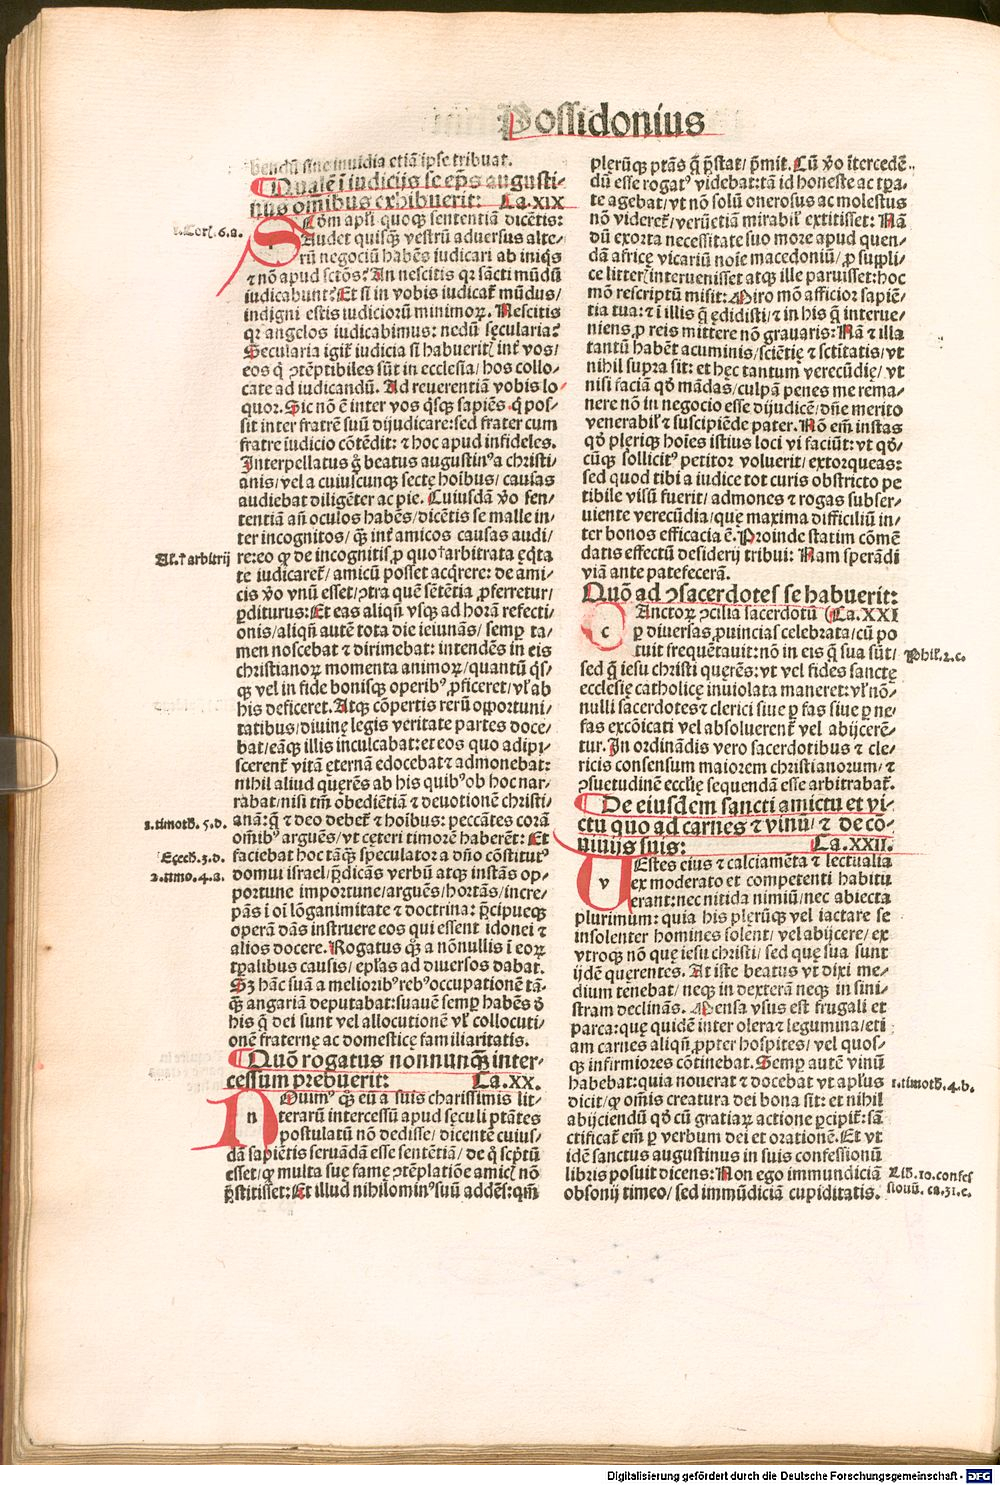 Possidonius
bendū sine inuidia etiā ipse tribuat.
Qualē ī iudicijs se ep̄s augusti⸗
nus omībus exhibuerit: Ca.XIX
1.Cor⁊.6.a.
Cōm apl̄i quoq̄ sententiā dicētis:
Audet quisq̄ vestrū aduersus alte⸗
rū negociū habēs iudicari ab iniq̄s
⁊ nō apud sctōs? An nescitis qꝛ sācti mūdū
iudicabunt? Et si in vobis iudicat̄ mūdus/
indigni estis iudiciorū minimoꝝ. Nescitis
qꝛ angelos iudicabimus: nedū sęcularia?
Secularia igit̄ iudicia si habuerit⁊ int̄ vos/
eos q̄ ↄtēptibiles sūt in ecclesia/ hos collo⸗
cate ad iudicandū. Ad reuerentiā vobis lo⸗
quor. Sic nō ē inter vos q̄sq̄ sapiēs q̄ pos⸗
sit inter fratrē suū dijudicare: sed frater cum
fratre iudicio cōtēdit: ⁊ hoc apud infideles.
Interpellatus g̊ beatus augustin⁹ a christi⸗
anis/ vel a cuiuscunq̄ sectę hoībus/ causas
audiebat diligēter ac pie. Cuiusdā v̊o sen⸗
tentiā an̄ oculos habēs/ dicētis se malle in⸗
ter incognitos/ q̄ȝ int̄ amicos causas audi/
Al.† arbitrij
re: eo ꝙ de incognitis ꝓ quo † arbitrata ęq̄ta
te iudicaret̄/ amicū posset acq̄rere: de ami⸗
cis v̊o vnū esset/ ↄtra quē sētētia ꝓferretur/
ꝑditurus: Et eas aliqn̄ vsq̄ ad horā refecti⸗
onis/ aliqn̄ autē tota die ieiunās/ semꝑ ta⸗
men noscebat ⁊ dirimebat: intendēs in eis
christianoꝝ momenta animoꝝ/ quantū q̄s⸗
q̄ vel in fide bonisq̄ operib⁹ ꝓficeret/ vl̄ ab
his deficeret. Atq̄ cōpertis rerū opportuni⸗
tatibus/ diuinę legis veritate partes doce⸗
bat/ eāq̄ illis inculcabat: et eos quo adipi⸗
scerent̄ vitā ęternā edocebat ⁊ admonebat:
nihil aliud quęrēs ab his quib⁹ ob hoc nar⸗
rabat/ nisi tm̄ obediētiā ⁊ deuotionē christi⸗
1.timoth̄. 5.d.
anā: q̄ ⁊ deo debet̄ ⁊ hoibus: peccātes corā
om̄ib⁹ arguēs/ vt cęteri timorē haberēt: Et
Eȝech̄.3.d.
faciebat hoc tāq̄ȝ speculator a dn̄o cōstitut⁹
2.timo.4.a.
domui israel/ p̄dicās verbū atq̄ instās op⸗
portune importune/ arguēs/ hortās/ incre⸗
pās ī oī lōganimitate ⁊ doctrina: p̄cipueq̄
operā dās instruere eos qui essent idonei ⁊
alios docere. Rogatus q̄ȝ a nōnullis ī eoꝝ
tp̄alibus causis/ epl̄as ad diuersos dabat.
Sȝ hāc suā a meliorib⁹ reb⁹ occupationē tā⸗
q̄ȝ angariā deputabat: suauē semꝑ habēs d̄
his q̄ dei sunt vel allocutionē vl̄ collocuti⸗
onē fraternę ac domesticę familiaritatis.
Quō rogatus nonnunq̄ȝ inter⸗
cessum prebuerit: Ca.XX.
n
Ouim⁹ q̄ȝ eū a suis charissimis lit⸗
terarū intercessū apud sęculi ptātes
postulatū nō dedisse/ dicentē cuius⸗
dā sapiētis seruādā esse sentētiā/ de q̊ sc̄ptū
esset/ ꝙ multa suę famę ↄtēplatiōe amic⁊ nō
p̄stitisset: Et illud nihilomin⁹ suū addēs: qm̄
plerūq̄ ptās q̄ p̄stat/ p̄mit. Cū v̊o ītercedē⸗
dū esse rogat⁹ videbat: tā id honeste ac tp̄a⸗
te agebat/ vt nō solū onerosus ac molestus
nō videret̄/ verūetiā mirabil̄ extitisset: Nā
dū exorta necessitate suo more apud quen⸗
dā africę vicariū noie macedoniū/ ꝓ suppli⸗
ce litter⁊ interuenisset atq̄ ille paruisset: hoc
mō rescriptū misit: Miro mō afficior sapiē⸗
tia tua: ⁊ ī illis q̄ ędidisti/ ⁊ in his q̄ interue⸗
niens ꝓ reis mittere nō grauaris: Nā ⁊ illa
tantū habēt acuminis/ sciētię ⁊ sctītatis/ vt
nihil supra sit: et hęc tantum verecūdię/ vt
nisi faciā q̊ mādas/ culpā penes me rema⸗
nere nō in negocio esse dijudicē/ dn̄e merito
venerabil̄ ⁊ suscipiēde pater. Nō em̄ instas
q̊ pleriq̄ hoīes istius loci vi faciūt: vt q̊⸗
cūq̄ sollicit⁹ petitor voluerit/ extorqueas:
sed quod tibi a iudice tot curis obstricto pe
tibile visū fuerit/ admones ⁊ rogas subser⸗
uiente verecūdia/ quę maxima difficiliū in⸗
ter bonos efficacia ē. Proinde statim cōmē
datis effectū desiderij tribui: Nam sperādi
viā ante patefecerā.
Quō ad ↄsacerdotes se habuerit:
c
Anctoꝝ ↄcilia sacerdotū (Ca.XXI
ꝑ diuersas ꝓuincias celebrata/ cū po
tuit frequētauit: nō in eis q̄ sua sūt/
Phil̄.2.c.
sed q̄ iesu christi quęrēs: vt vel fides sanctę
ecclesię catholicę inuiolata maneret: vl̄ nō⸗
nulli sacerdotes ⁊ clerici siue ꝑ fas siue ꝑ ne⸗
fas excōicati vel absoluerent̄ vel abijcerē⸗
tur. In ordinādis vero sacerdotibus ⁊ cle⸗
ricis consensum maiorem christianorum/ ⁊
ↄsuetudinē ecclię sequendā esse arbitrabat̄.
De eiusdem sancti amictu et vi⸗
ctu quo ad carnes ⁊ vinū/ ⁊ de cō⸗
uiuijs suis: Ca.XXII.
v
Estes eius ⁊ calciamēta ⁊ lectualia
ex moderato et competenti habitu
erant: nec nitida nimiū/ nec abiecta
plurimum: quia his plerūq̄ vel iactare se
insolenter homines solent/ vel abijcere/ ex
vtroq̄ nō quę iesu christi/ sed quę sua sunt
ijdē quęrentes. At iste beatus vt dixi me⸗
dium tenebat/ neq̄ in dexterā neq̄ in sini⸗
stram declinās. Mensa vsus est frugali et
parca: quę quidē inter olera ⁊ legumina/ eti
am carnes aliqn̄ ꝓpter hospites/ vel quos⸗
q̄ infirmiores cōtinebat. Semꝑ autē vinū
habebat: quia nouerat ⁊ docebat vt apl̄us
1.timoth̄.4.b.
dicit/ ꝙ om̄is creatura dei bona sit: et nihil
abijciendū q̊ cū gratiaꝝ actione ꝑcipit̄: sā
ctificat̄ em̄ ꝑ verbum dei et orationē. Et vt
idē sanctus augustinus in suis confessionū
libris posuit dicens: Non ego immundiciā
Lib̄.10.confes
obsonij timeo/ sed immūdiciā cupiditatis.
sionū. ca.31.c.
Digitalisierung gefördert durch die Deutsche Forschungsgemeinschaft - DFG